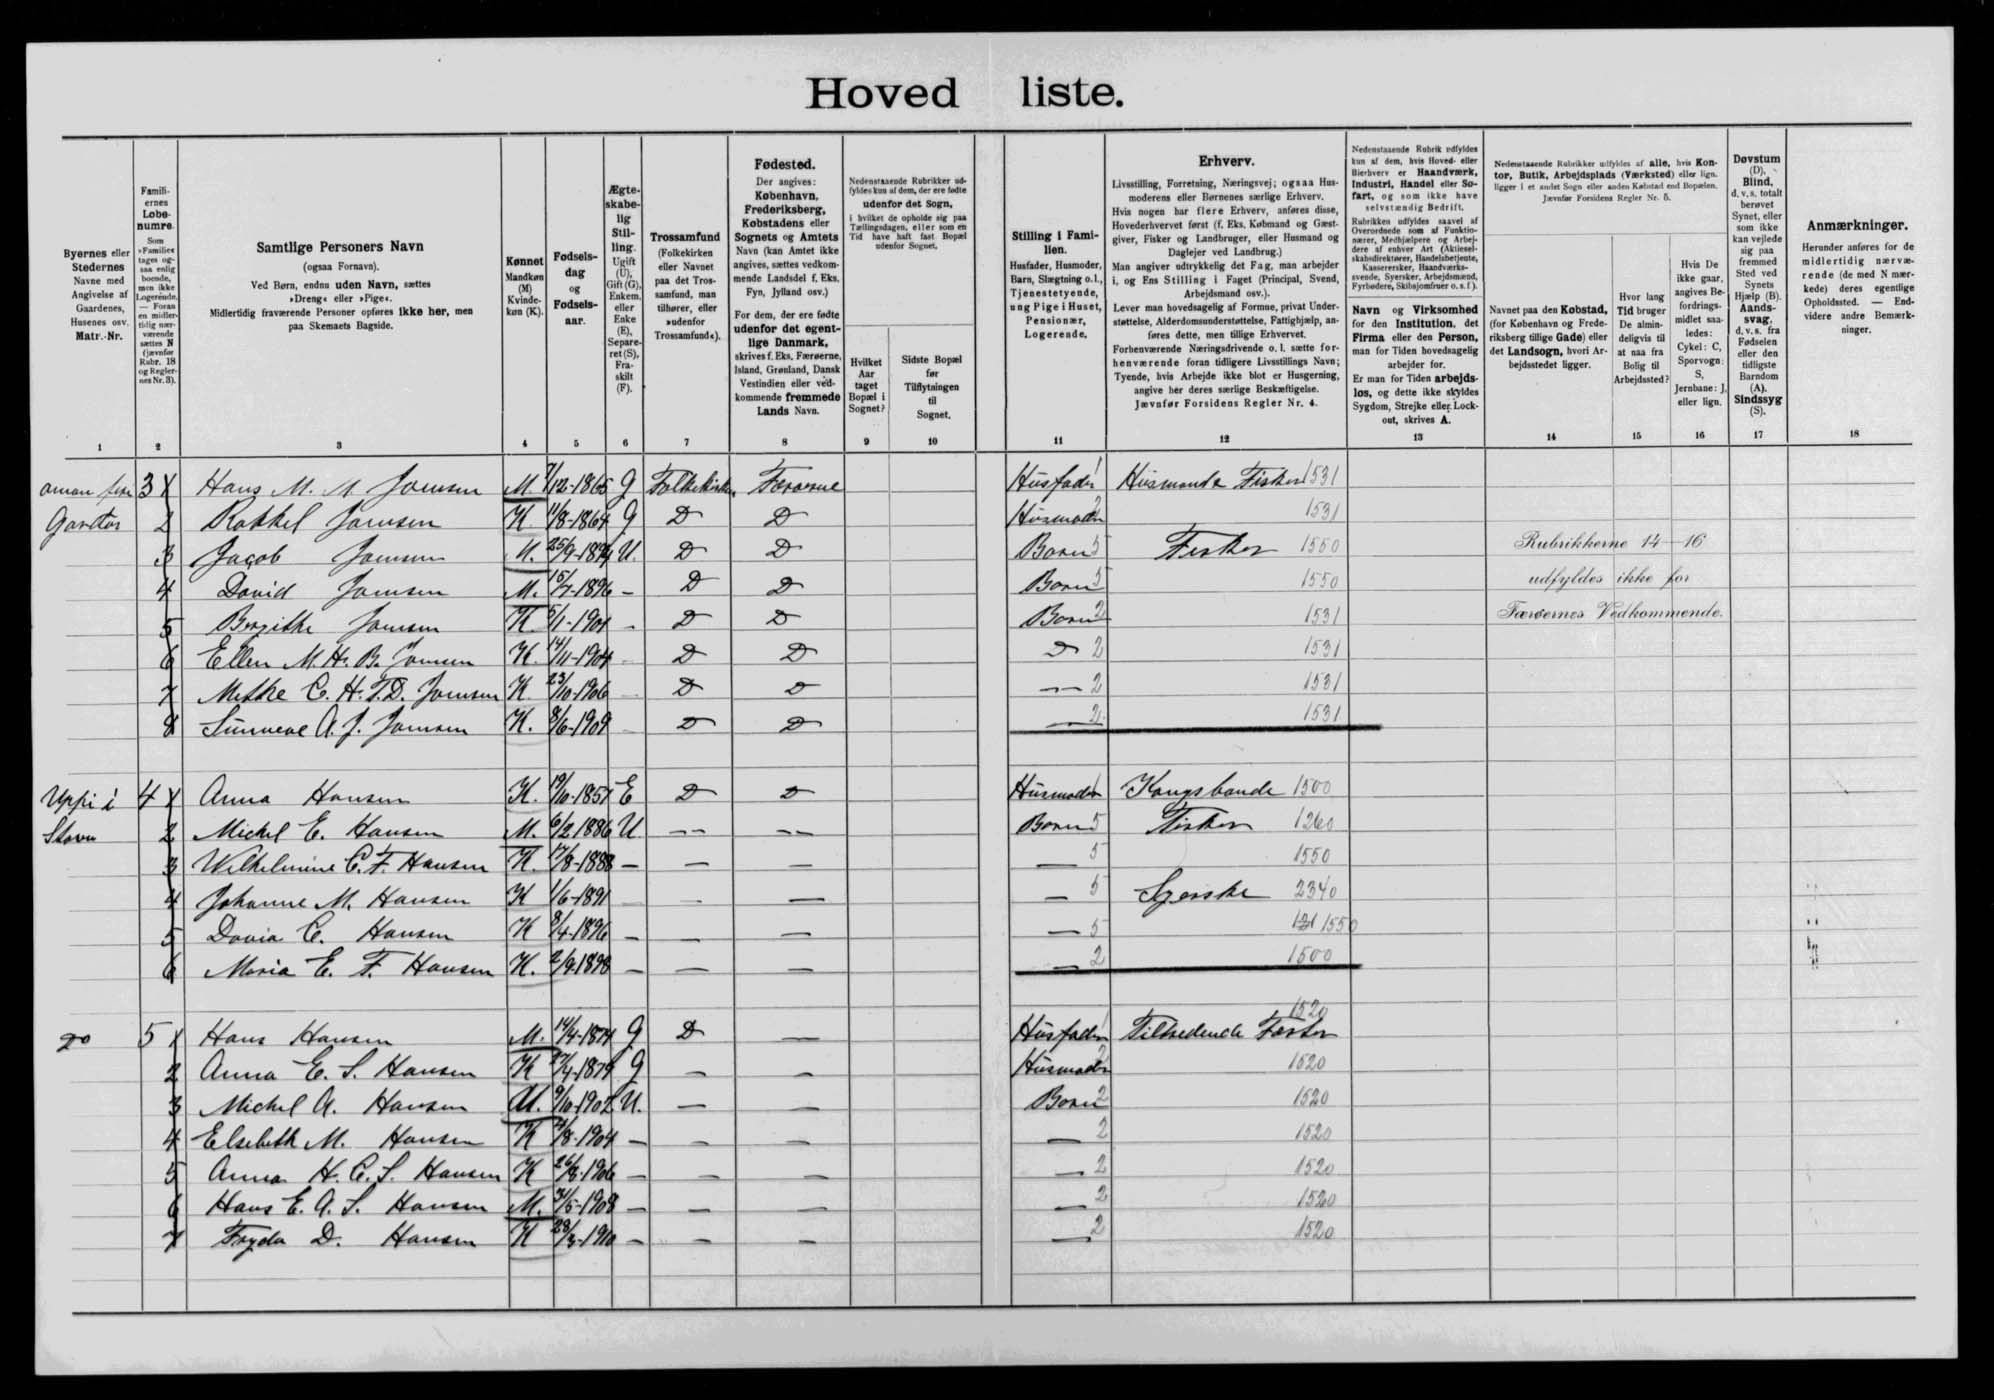 Hoved liste.
Byernes eller Stedernes Navne med Angivelse af Gaardenes, Husenes osv. Matr.-Nr.
Familiernes Løbenumre. Som »Familie« tages ogsaa enlig boende, men ikke Logerende. — Foran en midlertidig nærværende sættes N (jævnfør Rubr. 18 og Reglernes Nr. 3).
Samtlige Personers Navn (ogsaa Fornavn). Ved Børn, endnu uden Navn, sættes »Dreng« eller »Pige«. Midlertidig fraværende Personer opføres ikke her, men paa Skemaets Bagside.
Kønnet Mandkøn (M) Kvindekøn (K).
Fødselsdag og Fødselsaar.
Ægteskabelig Stilling. Ugift (U), Gift (G), Enkem. eller Enke (E), Separeret (S), Fraskilt (F).
Trossamfund (Folkekirken eller Navnet paa det Trossamfund, man tilhører, eller »udenfor Trossamfund«).
Fødested. Der angives: København, Frederiksberg, Købstadens eller Sognets og Amtets Navn (kan Amtet ikke angives, sættes vedkommende Landsdel f. Eks. Fyn, Jylland osv.) For dem, der ere fødte udenfor det egentlige Danmark, skrives f. Eks. Færøerne, Island, Grønland, Dansk Vestindien eller vedkommende fremmede Lands Navn.
Nedenstaaende Rubrikker udfyldes kun af dem, der ere fødte udenfor det Sogn, i hvilket de opholde sig paa Tællingsdagen, eller som en Tid have haft fast Bopæl udenfor Sognet.
Hvilket Aar taget Bopæl i Sognet?
Sidste Bopæl før Tilflytningen til Sognet.
Stilling i Familien. Husfader, Husmoder, Barn, Slægtning o. l., Tjenestetyende, ung Pige i Huset, Pensionær, Logerende.
Erhverv. Livsstilling, Forretning, Næringsvej; ogsaa Husmoderens eller Børnenes særlige Erhverv. Hvis nogen har flere Erhverv, anføres disse, Hovederhvervet først (f. Eks. Købmand og Gæstgiver, Fisker og Landbruger, eller Husmand og Daglejer ved Landbrug.) Man angiver udtrykkelig det Fag, man arbejder i, og Ens Stilling i Faget (Principal, Svend, Arbejdsmand osv.). Lever man hovedsagelig af Formue, privat Understøttelse, Alderdomsunderstøttelse, Fattighjælp, anføres dette, men tillige Erhvervet. Forhenværende Næringsdrivende o. l. sætte forhenværende foran tidligere Livsstillings Navn; Tyende, hvis Arbejde ikke blot er Husgerning, angive her deres særlige Beskæftigelse. Jævnfør Forsidens Regler Nr. 4.
Nedenstaaende Rubrik udfyldes kun af dem, hvis Hoved- eller Bierhverv er Haandværk, Industri, Handel eller Søfart, og som ikke have selvstændig Bedrift.
Navn og Virksomhed for den Institution, det Firma eller den Person, man for Tiden hovedsagelig arbejder for. Er man for Tiden arbejdsløs, og dette ikke skyldes Sygdom, Strejke eller Lockout, skrives A.
Nedenstaaende Rubrikker udfyldes af alle, hvis Kontor, Butik, Arbejdsplads (Værksted) eller lign. ligger i et andet Sogn eller anden Købstad end Bopælen. Jævnfør Forsidens Regler Nr. 5.
Navnet paa den Købstad, (for København og Frederiksberg tillige Gade) eller det Landsogn, hvori Arbejdsstedet ligger.
Hvor lang Tid bruger De almindeligvis til at naa fra Bolig til Arbejdssted?
Hvis De ikke gaar, angives Befordringsmidlet saaledes: Cykel: C, Sporvogn: S, Jernbane: J, eller lign.
Døvstum (D). Blind, d. v. s. totalt berøvet Synet, eller som ikke kan vejlede sig paa fremmed Sted ved Synets Hjælp (B). Aandssvag, d. v. s. fra Fødselen eller den tidligste Barndom (A). Sindssyg (S).
Anmærkninger. Herunder anføres for de midlertidig nærværende (de med N mærkede) deres egentlige Opholdssted. — Endvidere andre Bemærkninger.
1 2 3 4 5 6 7 8 9 10 11 12 13 14 15 16 17 18
3 1 Hans M. M. Joensen M. 7/12-1865 G Folkekirken Færøerne Husfader 1 Husmand & Fisker 1531
2 Rakkel Joensen K. 11/8-1864 G D D Husmoder 2 1531
3 Jacob Joensen M. 25/9-1894 U. D D Barn 5 Fisker 1550
Rubrikkerne 14—16
4 David Joensen M. 15/7-1896 – D D Barn 5 1550
udfyldes ikke for
5 Joensen K 5/1-1901 – D D Barn 2 1531
Færøernes Vedkommende.
6 Ellen M. H. B. Joensen K. 14/11-1904 – D D D 2 1531
7 C. H. T. D. Joensen K. 23/10-1906 – D D — 2 1531
8 Sunneve A. J. Joensen K. 8/6-1909 – D D — 2 1531
Uppi i 4 1 Anna Hansen K. 19/10-1857 E D D Husmoder 1 Kongsbonde 1500
2 Michel E. Hansen M. 6/2 1886 U — — Barn 5 Fisker 1260
3 Wilhelmine C. F. Hansen K. 17/8-1888 — — — — 5 1550
4 Johanne M. Hansen K 1/6-1891 — — — 5 Syerske 2340
5 Davia C. Hansen K 8/4-1896 — — — — 5 1550
6 Maria E. F. Hansen K. 2/9-1898 — — — — 2 1500
1520
do 5 1 Hans Hansen M. 14/4-1874 G D — Husfader 1 Tiltrædende Fæster
2 Anna E. S. Hansen K 27/4-1879 G — — Husmoder 2 1520
3 Michel A. Hansen M. 9/10-1902 U. — — Barn 2 1520
4 Elsebeth M. Hansen K 7/8-1904 — — — — 2 1520
5 Anna H. C. S. Hansen K 26/8-1906 — — — — 2 1520
6 Hans E. A. S. Hansen M. 31/5-1908 — — — — 2 1520
7 Fryda D. Hansen K 28/3-1910 — — — — 2 1520